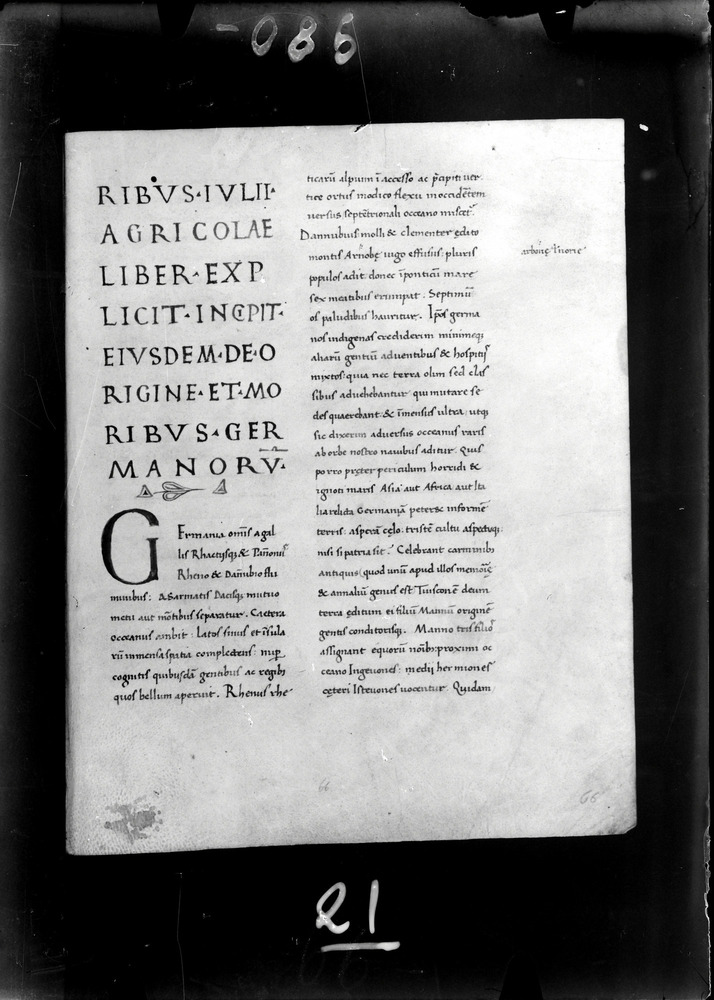 -086
RIBVS·IVLII·
AGRICOLAE
LIBER·EXP
LICIT·INCIPIT·
EIVSDEM·DE·O
RIGINE·ET·MO
RIBVS·GER
MANORV̄·
GErmania omīs a gal
lis Rhaetijsq; & Pānonijs
Rheno & Danubio flu
minibus: a Sarmatis Dacisq; mutuo
metu aut mōtibus separatur. Caetera
occeanus ambit: Latos sinus et īsula
rū inmensa spatia complectens: nup̄
cognitis quibusdā gentibus ac regib;
quos bellum aperuit. Rhenus rhe
ticarū alpium īaccesso ac p̄cipiti uer
tice ortus modico flexu in occidētem
uersus septētrionali occeano miscet᷑.
Dannubius molli & clementer ędito
montis Arnobę iugo effusus: pluris
populos adit: donec īponticū mare
sex meatibus erumpat: Septimū
os paludibus hauritur. Ip̄os germa
nos indigenas crediderim minimeq;
aliarū gentiū aduentibus & hospitijs
mixtos: quia nec terra olim sed clas
sibus aduehebantur qui mutare se
des quaerebant: & īmensus ultra: utq;
sic dixerim aduersus occeanus raris
ab orbe nostro nauibus aditur. Quis
porro pręter periculum horridi &
ignoti maris Asia aut Africa aut Ita
lia relicta Germaniā peteret: informē
terris: asperā cęlo: tristē cultu aspectuq;
nisi si patria sit. Celebrant carminib;
antiquis (quod unū apud illos memorię
& annaliū genus est Tuisconē deum
terra ęditum et filiū Mannū originē
gentis conditorisq;. Manno tris filios
assignant equorū noīb; proximi oc
ceano Ingeuones: medij hermiones
cęteri Isteuones uocentur. Quidam
66
66
21